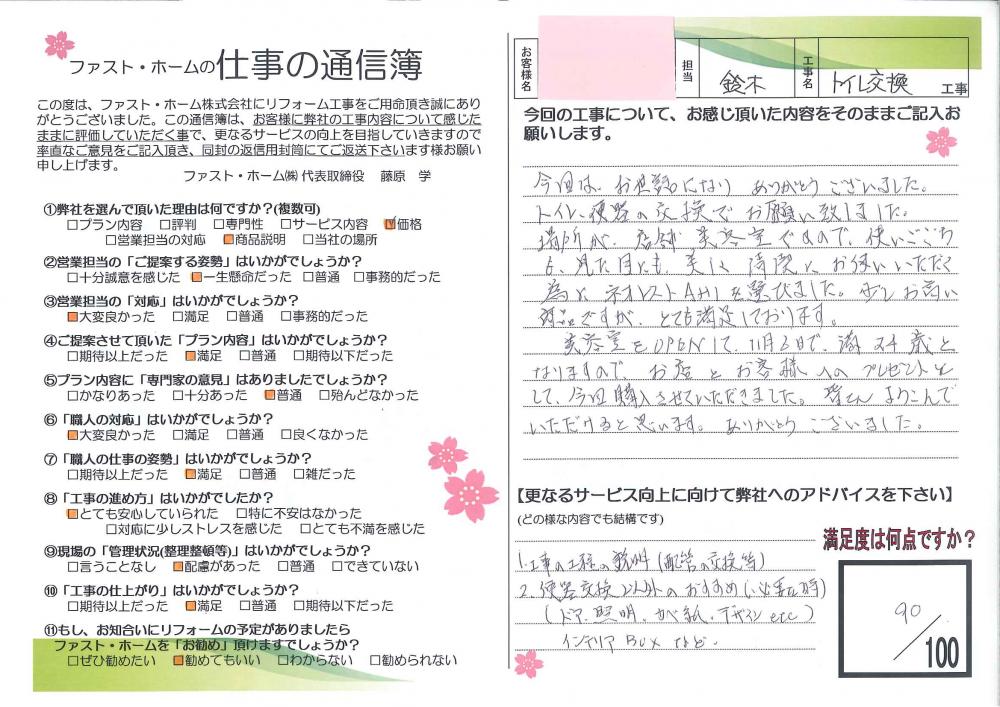 ファスト・ホームの仕事の通信簿
この度は、ファスト・ホーム株式会社にリフォーム工事をご用命頂き誠にあり
がとうございました。この通信簿は、お客様に弊社の工事内容について感じた
ままに評価していただく事で、更なるサービスの向上を目指していきますので
率直なご意見をご記入頂き、同封の返信用封筒にてご返送下さいます様お願い
申し上げます。
ファスト・ホーム㈱ 代表取締役 藤原 学
①弊社を選んで頂いた理由は何ですか?(複数可)
□プラン内容 □評判 □専門性 □サービス内容 ☑価格
□営業担当の対応 ■商品説明 □当社の場所
②営業担当の「ご提案する姿勢」はいかがでしょうか?
□十分誠意を感じた ■一生懸命だった □普通 □事務的だった
③営業担当の「対応」はいかがでしょうか?
■大変良かった □満足 □普通 □事務的だった
④ご提案させて頂いた「プラン内容」はいかがでしょうか?
□期待以上だった ■満足 □普通 □期待以下だった
⑤プラン内容に「専門家の意見」はありましたでしょうか?
□かなりあった □十分あった ■普通 □殆んどなかった
⑥「職人の対応」はいかがでしょうか?
■大変良かった □満足 □普通 □良くなかった
⑦「職人の仕事の姿勢」はいかがでしょうか?
□期待以上だった ■満足 □普通 □雑だった
⑧「工事の進め方」はいかがでしたか?
■とても安心していられた □特に不安はなかった
□対応に少しストレスを感じた □とても不満を感じた
⑨現場の「管理状況(整理整頓等)」はいかがでしょうか?
□言うことなし ■配慮があった □普通 □できていない
⑩「工事の仕上がり」はいかがでしょうか?
□期待以上だった ■満足 □普通 □期待以下だった
⑪もし、お知合いにリフォームの予定がありましたら
ファスト・ホームを「お勧め」頂けますでしょうか?
□ぜひ勧めたい ■勧めてもいい □わからない □勧められない
お客様名 担当 鈴木 工事名 トイレ交換 工事
今回の工事について、お感じ頂いた内容をそのままご記入お
願いします。
今回は、お世話になり ありがとう ございました。
トイレ、便器の交換で お願い致しました。
場所が、店舗 美容室ですので、使いごこち
も、見た目にも、美しく 清潔に お使いいただく
為に ネオレストAH1を選びました。少しお高い
商品ですが、とても満足しております。
美容室をOPENして、11月3日で、満24歳と
なりますので、お店とお客様へのプレゼントと
して、今回購入させていただきました。皆さん よろこんで
いただけると思います。ありがとう ございました。
【更なるサービス向上に向けて弊社へのアドバイスを下さい】
(どの様な内容でも結構です)
1.工事の工程の説明(配管の交換等)
2.便器交換以外のおすすめ(必要な時)
(ドア、照明、かべ紙、デザイン etc)
インテリア BOX など.
満足度は何点ですか?
90/100